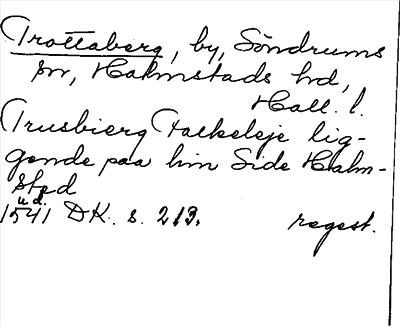 Trottaberg, by, Söndrums
sn, Halmstads hd,
Hall. l.
Trusbierg Falkeleje lig-
gende paa hin Side Halm-
sted
u.d.
1541 DK. s. 213. regest.